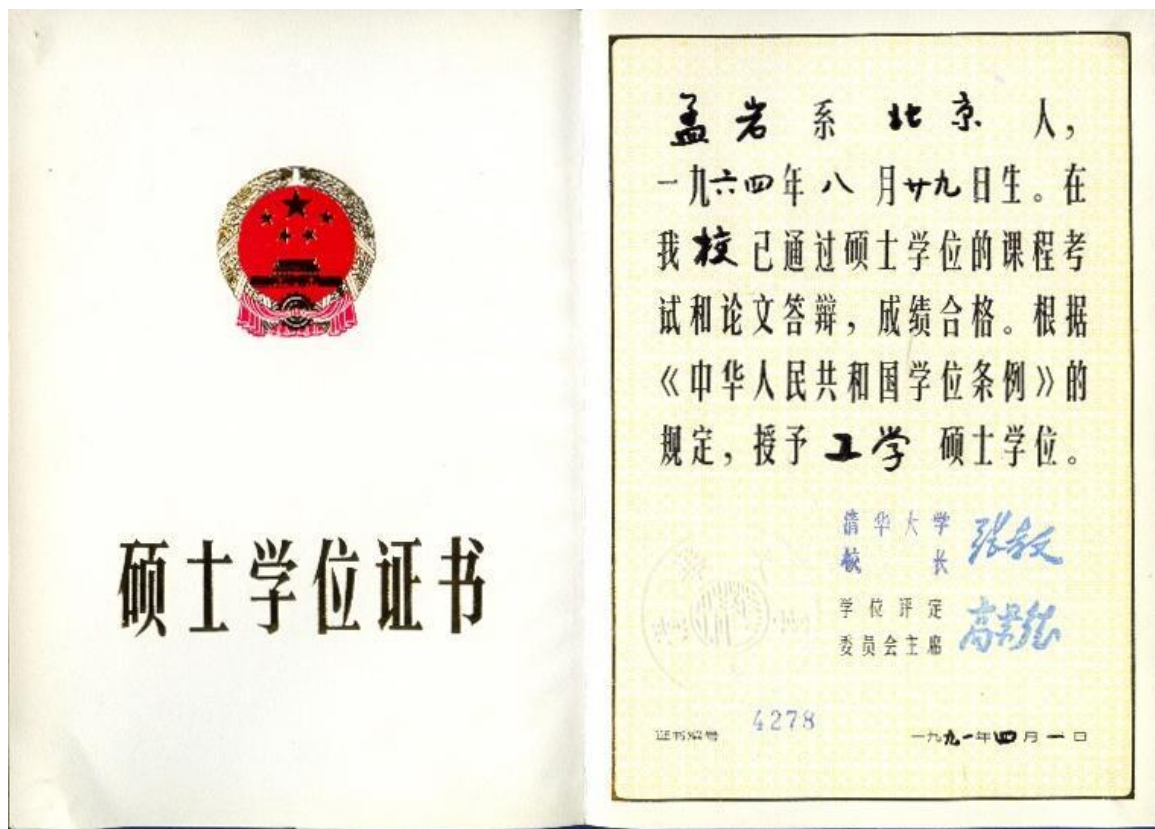 硕士学位证书
孟岩系北京人，
一九六四年八月廿九日生。在
我校已通过硕士学位的课程考
试和论文答辩，成绩合格。根据
《中华人民共和国学位条例》的
规定，授予工学硕士学位。
清华大学
校长 张孝文
学位评定
委员会主席 高景德
证书编号 4278 一九九一年四月一日